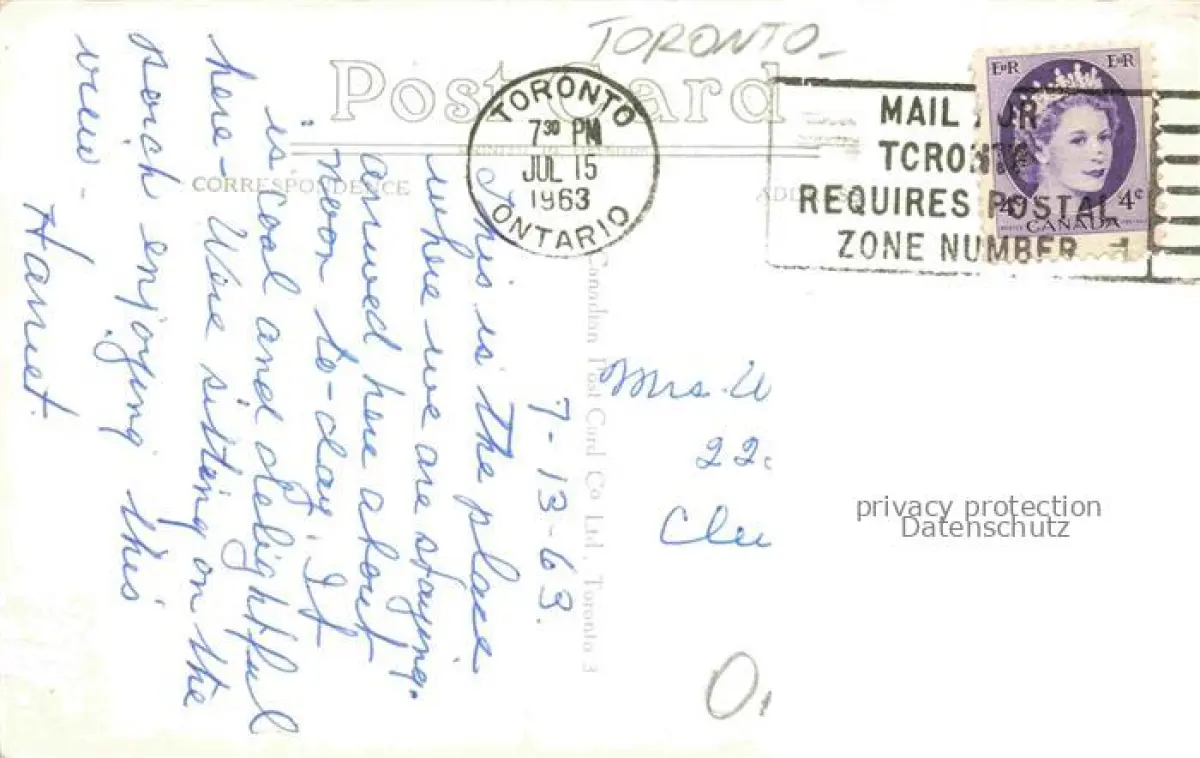 TORONTO-
Post Card
TORONTO
7 30 PM
JUL 15
1963
ONTARIO
MAIL FOR
TORONTO
REQUIRES POSTAL
ZONE NUMBER
E II R E II R
4 4c
CANADA
CORRESPONDENCE
Canadian Post Card Co Ltd., Toronto 3
7-13-63.
This is the place
where we are staying.
arrived here about
noon to-day. It
is cool and delightful
here- We're sitting on the
porch enjoying this
view-
Harriet.
Mrs.
22
Cle
privacy protection
Datenschutz